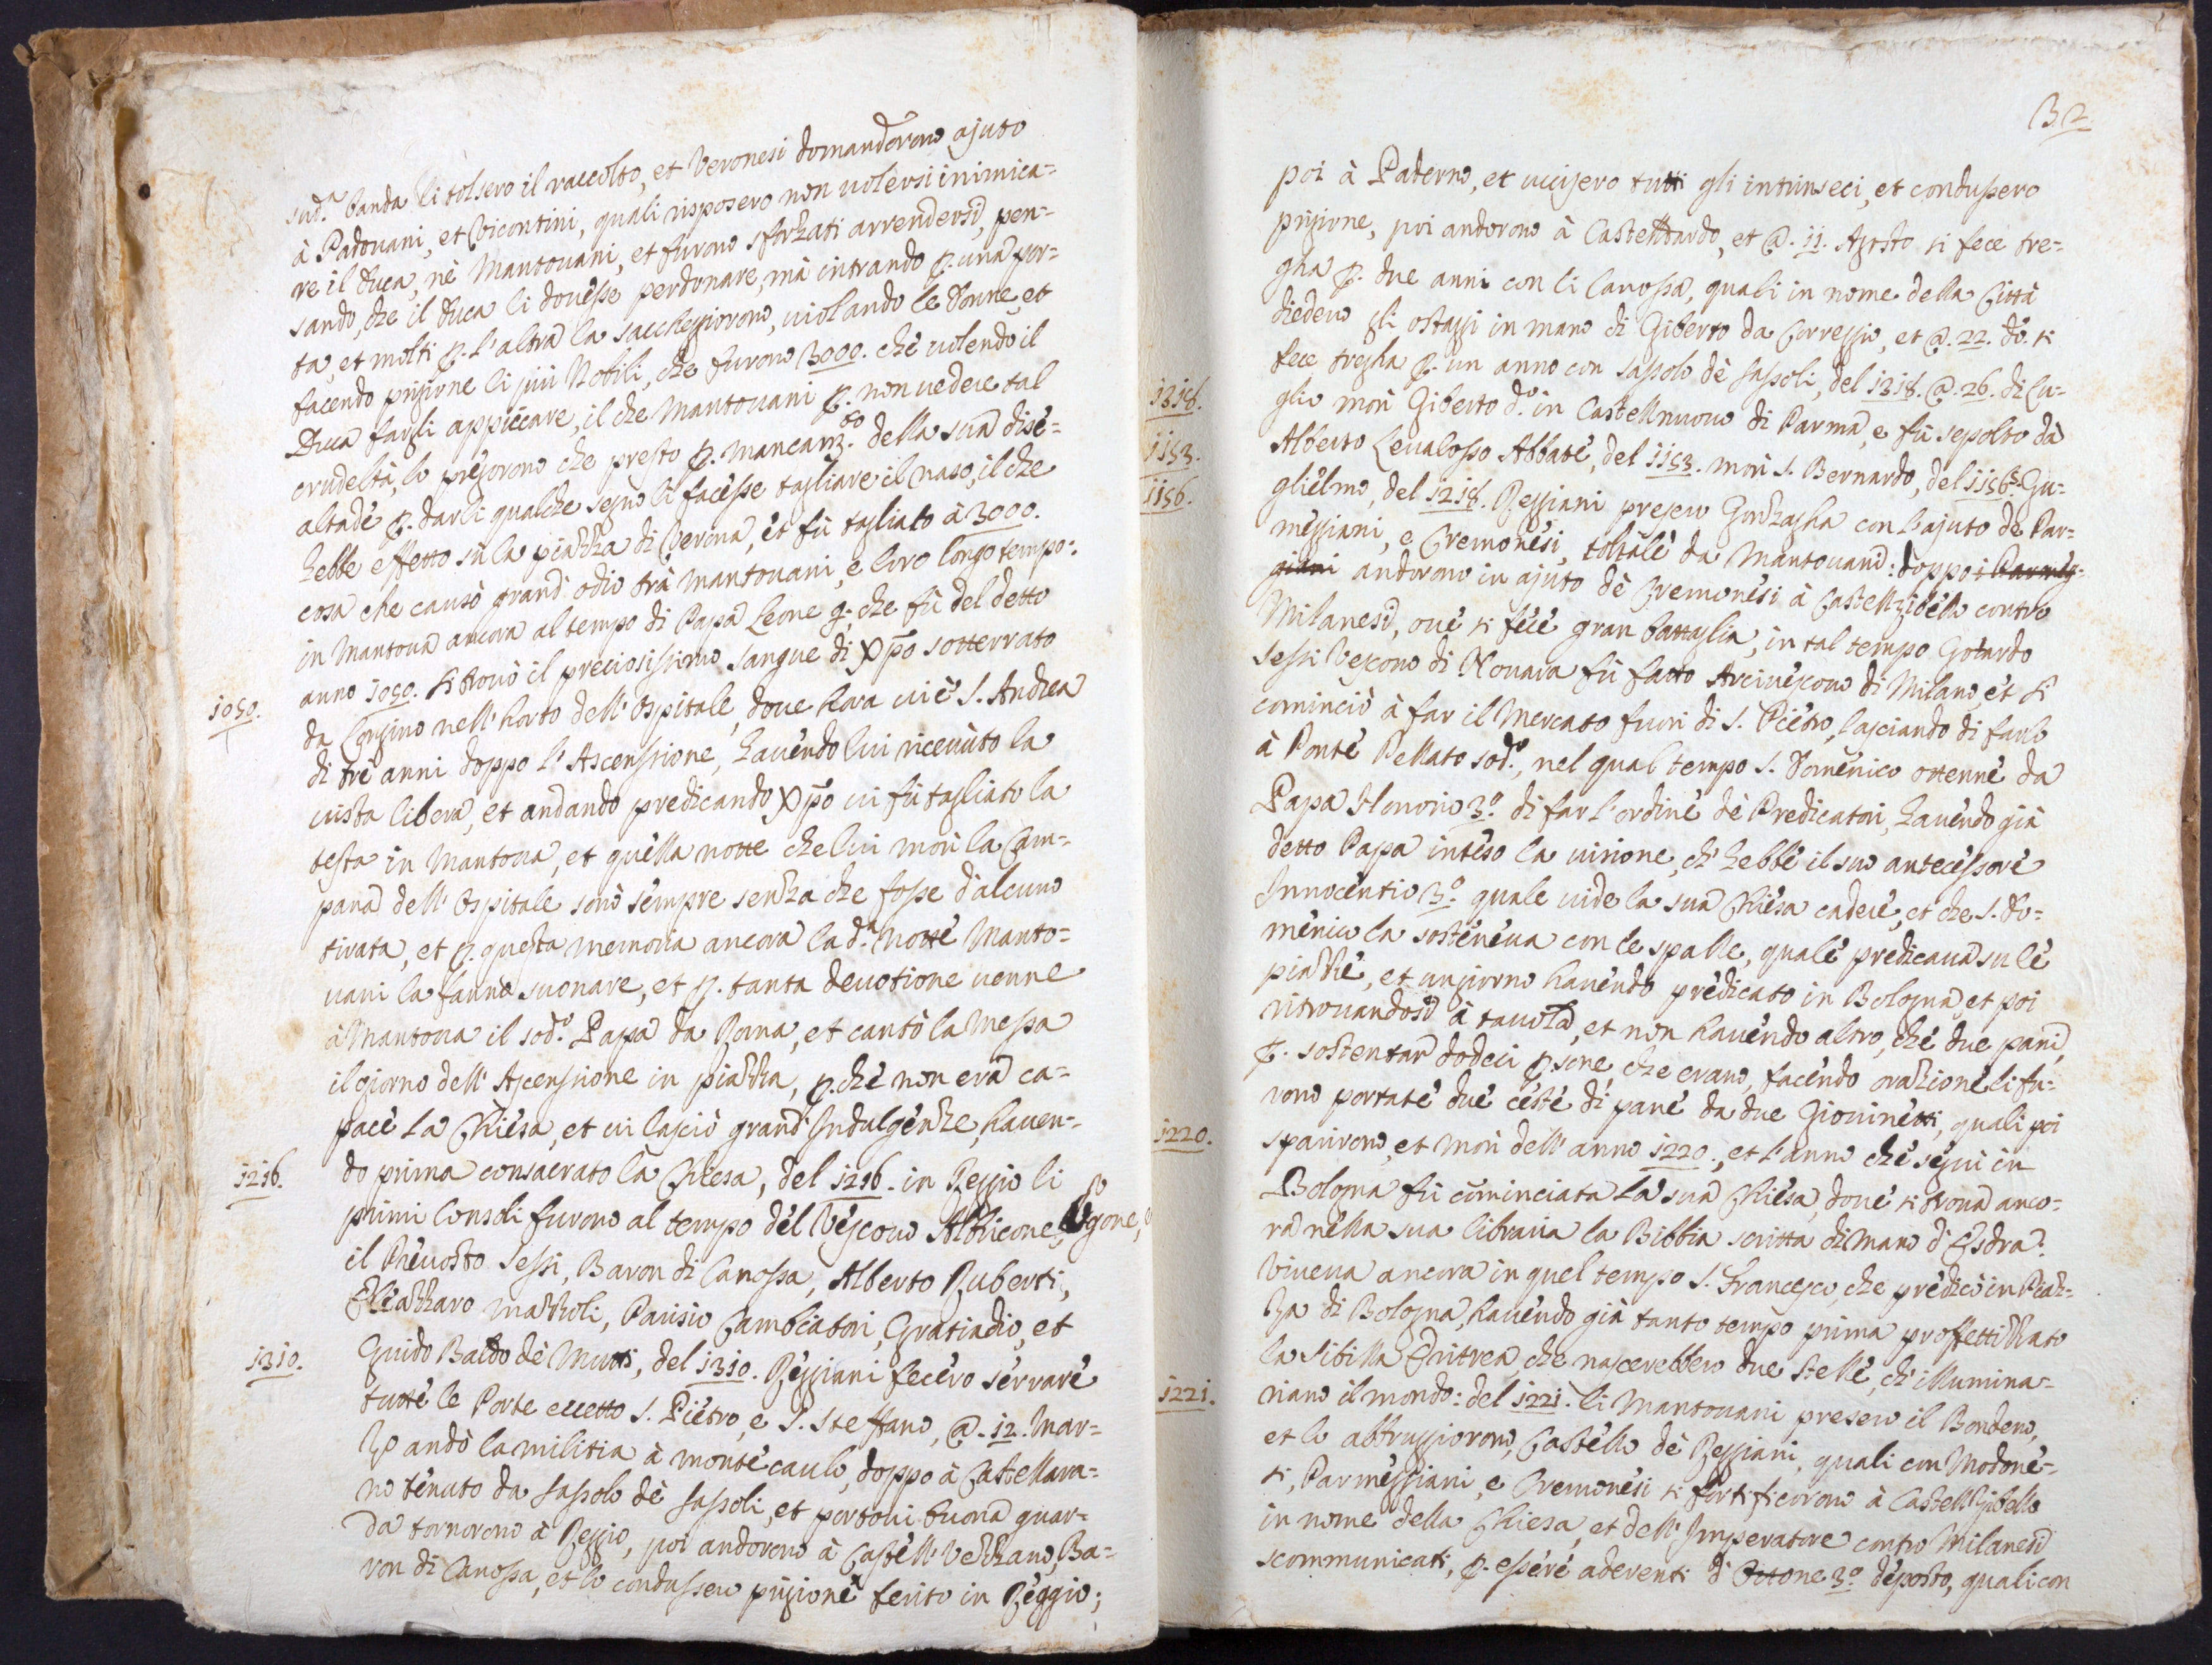 sud.ª banda li tolsero il raccolto, et Veronesi domandorono ajuto
à Padouani, et Vicentini, quali risposero non uolersi inimica=
re il Duca, nè Mantouani, et furono sforzati arrendersi, pen=
sando, che il Duca li douesse perdonare, mà intrando p. una por=
ta, et molti p. l'altra la saccheggiorono, uiolando le Donne, et
facendo prigione li più Nobili, che furono 3000. che uolendo il
Duca fargli appiccare, il che Mantouani p. non uedere tal
crudeltà, lo pregorono che presto p. mancam.to della sua dise=
altade p. darli qualche segno li facesse tagliare il naso, il che
hebbe effetto sù la piazza di Verona, et fù tagliato à 3000.
cosa che causò grand' odio trà Mantouani, e loro longo tempo:
in Mantoua ancora al tempo di Papa Leone 9.º che fù del detto
1050.
anno 1050. si trouò il preciosissimo sangue di Xpo sotterrato
da Longino nell'horto dell'Ospitale, doue hora ui è S. Andrea
di trè anni doppo l'Ascenssione, hauendo lui riceuuto la
uista libera, et andando predicando Xpo ui fù tagliato la
testa in Mantoua, et quella notte che lui morì la Cam=
pana dell'Ospitale sonò sempre senza che fosse d'alcuno
tirata, et p. questa memoria ancora la d.ª notte Manto=
uani la fanno suonare, et p. tanta deuotione uenne
à Mantoua il sod.º Papa da Roma, et cantò la Messa
il giorno dell'Ascenssione in piazza, p.chè non era ca=
pace la Chiesa, et ui lasciò grand' Indulgenze, hauen=
1216.
do prima consacrato la Chiesa, del 1216. in Reggio li
primi Consoli furono al tempo del Vescouo Albricone, Ugone,
il Preuosto Sessi, Baron di Canossa, Alberto Ruberti,
Eleazzaro Mazzoli, Parisio Cambiatori, Gratiadio, et
1310.
Guido Baldo dè Mutti, del 1310. Reggiani fecero serrare
tutte le Porte eccetto S. Pietro, e S. Steffano, @. 12. Mar=
zo andò la militia à monte caulo, doppo à Castellara=
no tenuto da Sassolo dè Sassoli, et portoui buona guar=
da tornorono à Reggio, poi andorono à Castell' Vezzano, Ba=
ron di Canossa, et lo condussero prigione ferito in Reggio;
32
poi à Paderno, et uccisero tutti gli intrinseci, et condussero
prigione, poi andorono à Casteltdardo, et @. 11. Agosto si fece tre=
gha p. due anni con li Canossa, quali in nome della Città
diedero gli ostaggi in mano di Giberto da Correggio, et @. 22. d.º si
fece tregha p. un anno con Sassolo dè Sassoli, del 1318. @. 26. di Lu=
1318.
glio morì Giberto d.º in Castellnuouo di Parma, e fù sepolto dà
1153.
Alberto Leualosso Abbate, del 1153. morì S. Bernardo, del 1156. Gu=
1156.
glielmo, del 1218. Reggiani presero Gonzagha con l'ajuto dè Par=
meggiani, e Cremonesi, toltale da Mantouani: doppo i Parmeg=
giani andorono in ajuto dè Cremonesi à Castellzibello contro
Milanesi, oue si fece gran battaglia, in tal tempo Gotardo
Sessi Vescouo di Nouara fù fatto Arciuescouo di Milano, et si
cominciò à far il Mercato fuori di S. Pietro, lasciando di farlo
à Ponte Pellato sod.º, nel qual tempo S. Domenico ottenne da
Papa Honorio 3.º di far l'ordine dè Predicatori, hauendo già
detto Papa inteso la uisione, ch' hebbe il suo antecessore
Innocentio 3.º quale uide la sua Chiesa cadere, et che S. Do=
menico la sosteneua con le spalle, quale predicaua su le
piazze, et un giorno hauendo predicato in Bologna, et poi
ritrouandosi à tauola, et non hauendo altro, che due pani,
p. sostentar dodeci p.sone, che erano, facendo orazione li fu=
rono portate due ceste di pane da due Giouinetti, quali poi
1220.
sparirono, et morì dell'anno 1220., et l'anno che seguì in
Bologna fù cominciata la sua Chiesa, doue si troua anco=
ra nella sua libraria la Bibbia scritta di mano d'Esdra.
Viueua ancora in quel tempo S. Francesco, che predicò in Piaz=
za di Bologna, hauendo già tanto tempo prima proffettizzato
la Sibilla Eritrea che nascerebbero due stelle, ch' illumina=
1221.
riano il mondo: del 1221. li Mantouani presero il Bondeno,
et lo abbruggiorono, Castello dè Reggiani, quali con Modone=
si, Parmeggiani, e Cremonesi si fortificorono à Castellzibello
in nome della Chiesa, et dell'Imperatore contro Milanesi
scommunicati, p. essere aderenti d'Ottone 3.º deposto, quali con